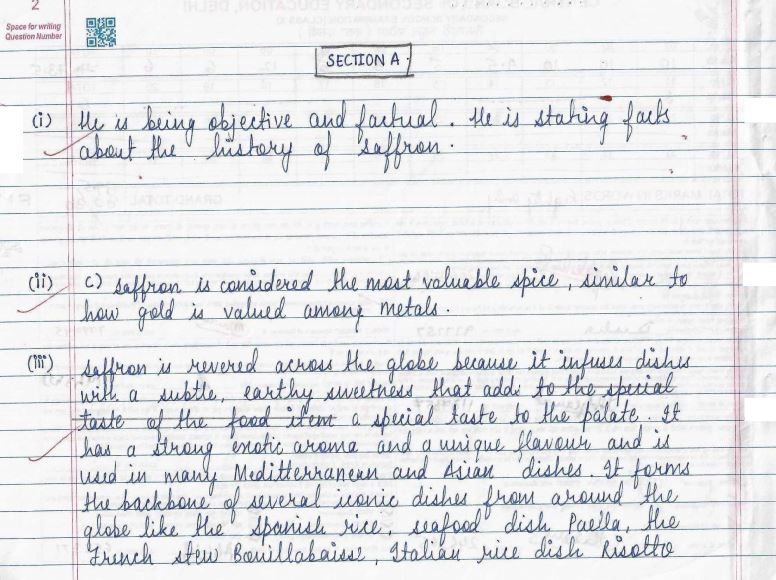 2
Space for writing
Question Number
SECTION A
(i) He is being objective and factual. He is stating facts
about the history of saffron.
(ii) c) saffron is considered the most valuable spice, similar to
how gold is valued among metals.
(iii) saffron is revered across the globe because it infuses dishes
with a subtle, earthy sweetness that adds to the special
taste of the food item a special taste to the palate. It
has a strong exotic aroma and a unique flavour and is
used in many Meditterranean and Asian dishes. It forms
the backbone of several iconic dishes from around the
globe like the Spanish rice, seafood dish Paella, the
French stew Bouillabaisse, Italian rice dish Risotto